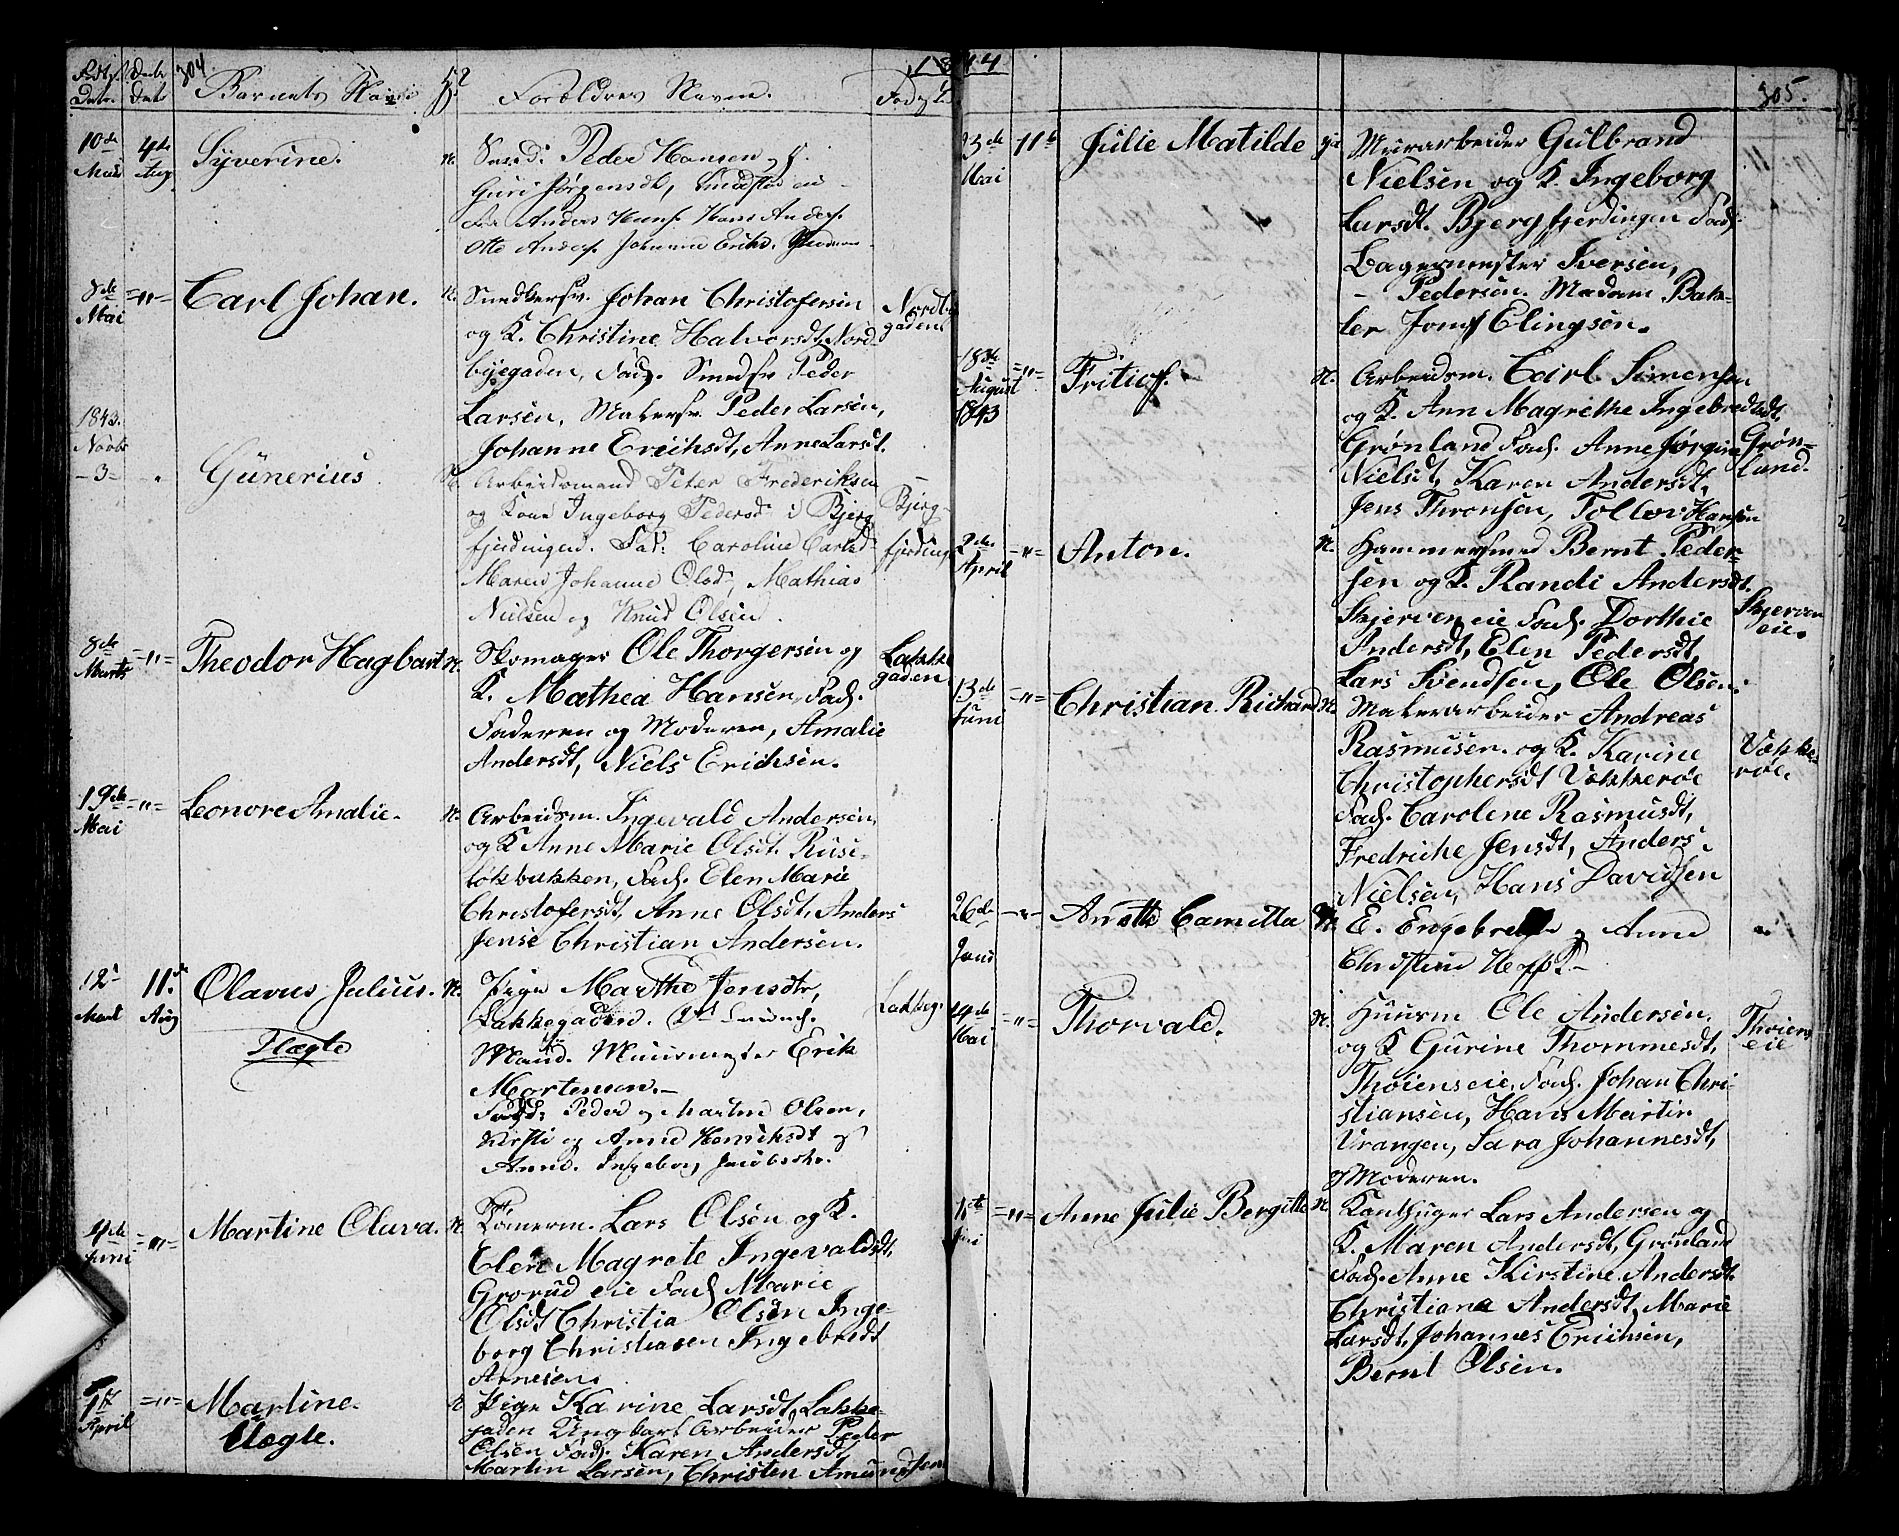 304.
1844
Barnets Navn
Forældres Navne.
10de Mai
4de Aug
Syverine.
n.
Smed. Peder Hansen og K.
Guri Jørgensdt,
Anders Hans. Hans Anders.
Ole Anders. Johanne Eriks.
8de Mai
="=
Carl Johan.
n.
Smedkersv. Johan Christofersen
og K. Christine Halvorsdt, Nord-
byegaden, Fad. Smedsv Peder
Larsen, Malersv. Peder Larsen,
Johanne Erichsdt, Anne Larsdt.
Nordb-
gaden
1843.
Novbr
-3-
Günerius
n.
Arbeidsmand Peter Frederiksen
og Kone Ingeborg Pedersd i Bjerg
fjerdingen. Fad: Caroline Carlsd-
Maren Johanne Olsd, Mathias
Nielsen og Knud Olsen.
Bjerg-
fjerding
8de Marts
="=
Theodor Hagbart
n.
Skomager Ole Thorgersen og
K. Mathea Hansen, Fad.
Faderen og Moderen, Amalie
Andersdt, Niels Erichsen.
Lakke
gaden
19de Mai
="=
Leonore Amalie.
n.
Arbeidsm. Ingevald Andersen,
og K Anne Marie Olsdt. Ruse-
løkbakken, Fad. Elen Marie
Christofersdt, Anne Olsdt, Anders
Jense Christian Andersen.
12te
11te Aug
Olavus Julius.
n.
Uægte
Pige Marthe Jensdtr,
Lakkegaden.
Mand. Muurmester Erik
Mortensen.-
Fadd: Peder og Martin Olsen,
Kirsti og Anne Henrichsdt og
Anne Ingeborg Jacobsdtr.
Lakkeg.
4de Juni
="=
Martine Olava.
n.
Tømerm. Lars Olsen og K.
Elen Magrete Ingevaldsdt,
Grorud eie Fad. Marie
Olsdt Christia Olsen Inge-
borg Christiansen Ingebredt
Arnesen.
17 April
="=
Martine.
Uægte.
n
Pige Karine Larsdt, Lakke-
gaden Ungkarl Arbeider Peder
Olsen Fad. Karen Andersdt,
Martin Larsen, Christen Amundsen
305.
23de Mai
11te
Julie Matilde
Murarbeider Gulbrand
Nielsen og K. Ingeborg
Larsdt. Bjergfjerdingen Fad.
Bagermester Iversen,
- Pedersen. Madam Bak-
ler Jomf Elingsen.
18de August 1843
="=
Fritiof.
n.
Arbeidsm. Carl Simensen
og K. Ann Magrethe Ingebredtsdt,
Grønland Fad. Anne Jørgine
Nielsdt, Karen Andersdt,
Jens Thronsen, Tollov Hansen
Grøn-
land.
2de April
="=
Anton.
n.
Hammersmed Bernt Peder-
sen og K. Randi Andersdt.
Skjerven eie Fad. Dorthie
Andersdt, Elen Pedersdt,
Lars Svendsen, Ole Olsen.
Skjerven
eie.
13de Juni
="=
Christian Richard
n.
Malerarbeider Andreas
Rasmusen. og K. Karine
Christophersdt Vækkerøe
Fad. Carolene Rasmusdt,
Fredriche Jensdt, Anders
Nielsen, Hans Davidsen
Vække-
røe.
26de Juni
="=
Anette Camilla
n.
E. Engebret og Anne
Christine Hoff
"
14de Mai
="=
Thorvald.
n.
Huusm Ole Andersen,
og K Gurine Thommesdt,
Thøienseie, Fad. Johan Chri-
stiansen, Hans Martin
Vrangen, Sara Johannesdt,
og Moderen.
Thøiens
eie
11te
="=
Anne Julie Bergitte
n
Kanthuger Lars Andersen og
K. Maren Andersdt, Grønland
Fad. Anne Kirstine Andersdt.
Christiane Andersdt, Marie
Larsdt, Johannes Erichsen,
Bernt Olsen.